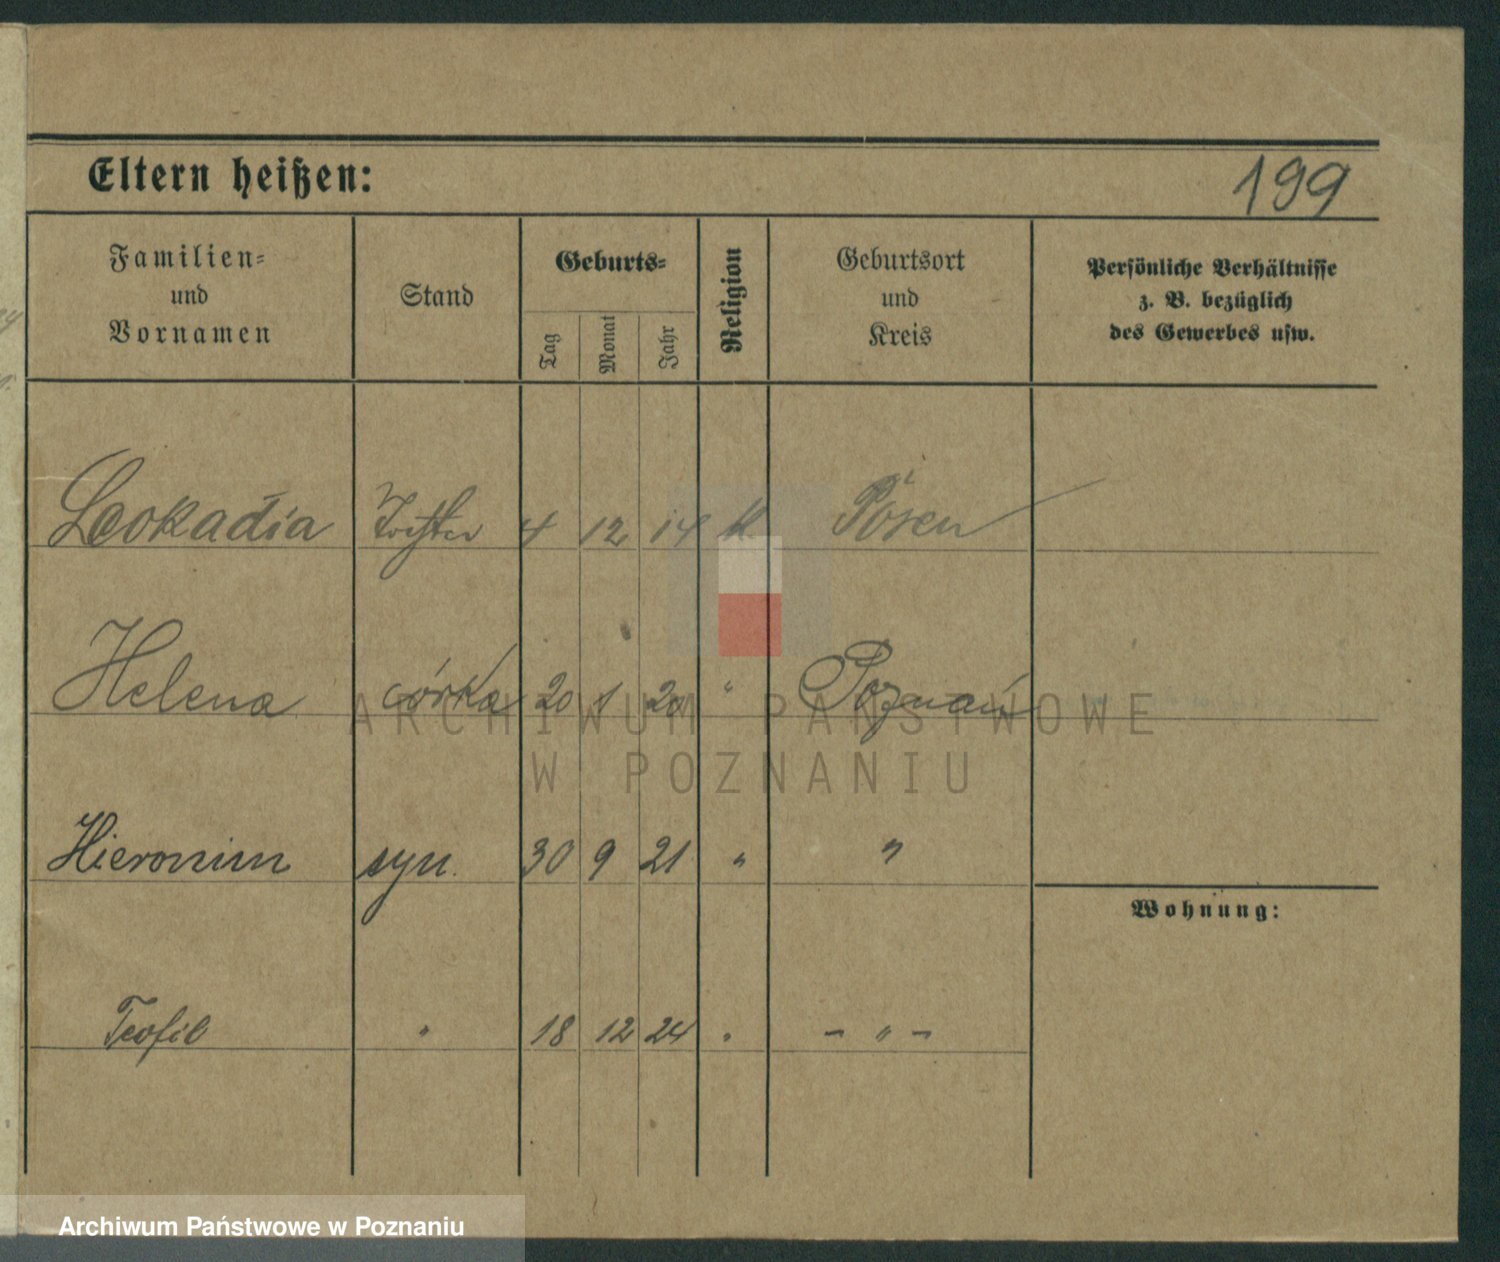 Eltern heißen:
199
Familien=
und
Vornamen
Stand
Geburts=
Tag
Monat
Jahr
Religion
Geburtsort
und
Kreis
Persönliche Verhältnisse
z. B. bezüglich
des Gewerbes usw.
Leokadia Tochter 4 12 14 k. Posen
Helena córka 20 1 20 " Poznań
Hieronim syn. 30 9 21 " "
Wohnung:
Teofil " 18 12 24 " - " -
ARCHIWUM PAŃSTWOWE
W POZNANIU
Archiwum Państwowe w Poznaniu